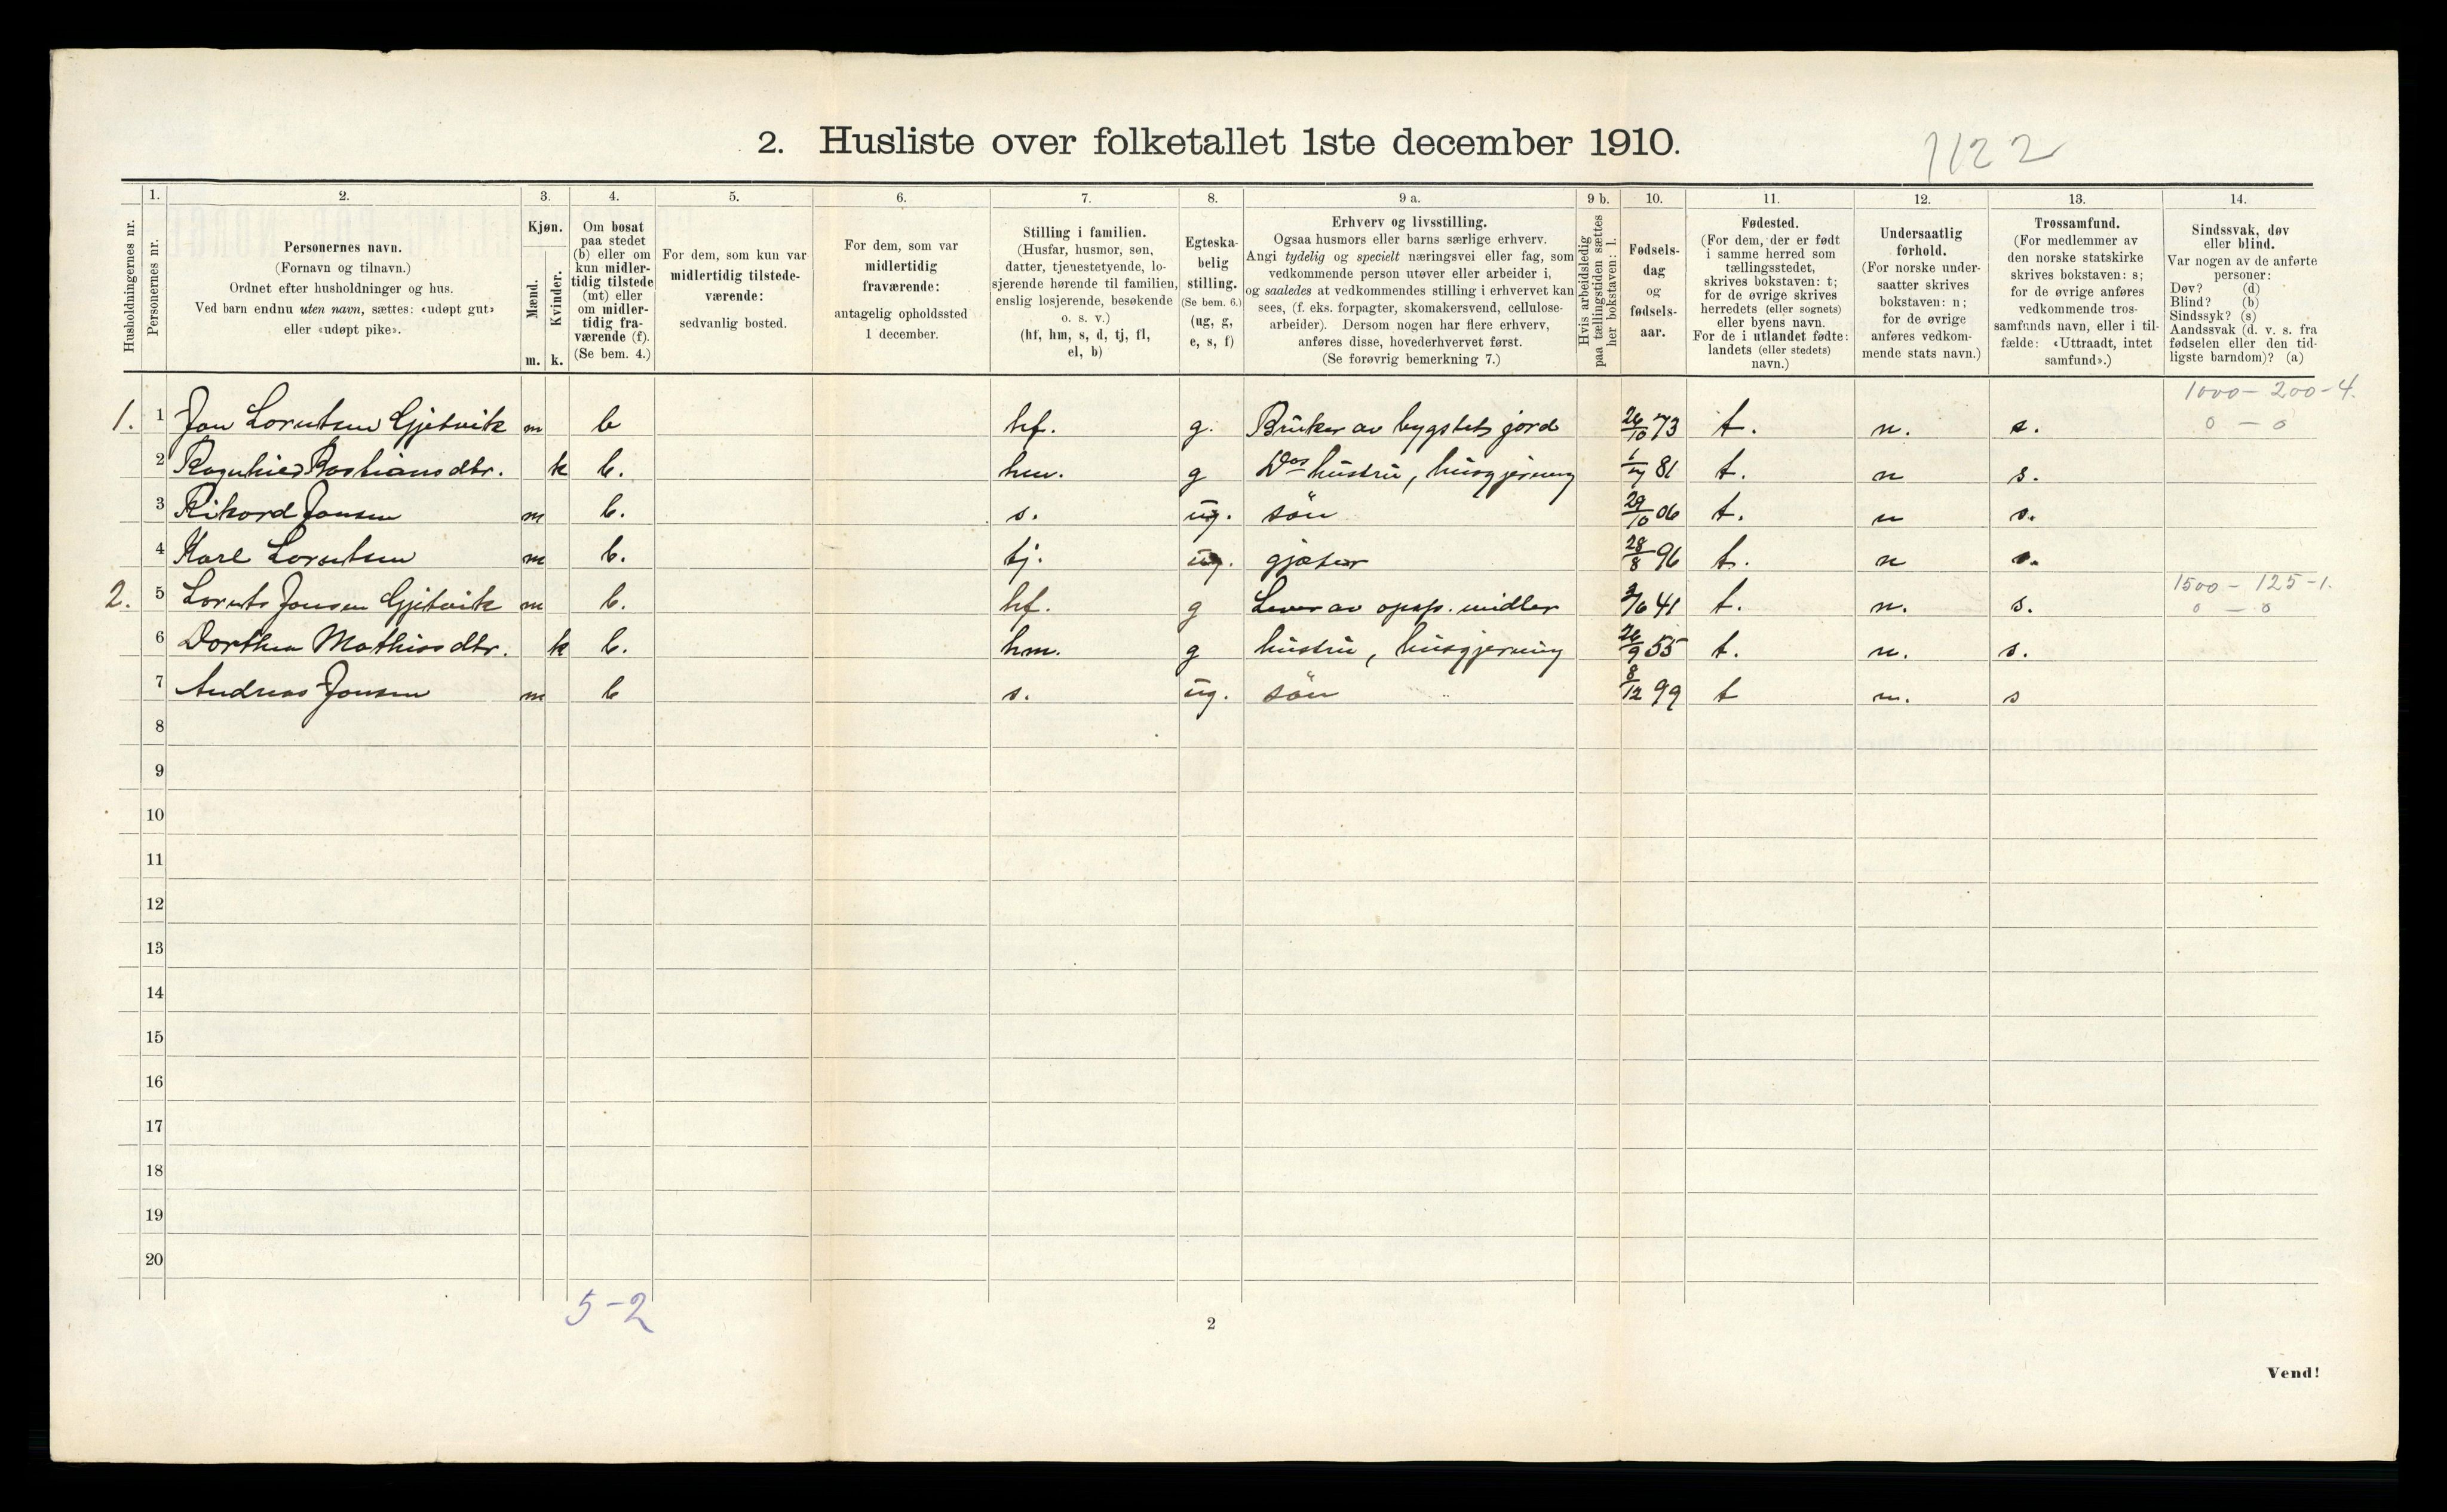 2. Husliste over folketallet 1ste december 1910.
1122
Husholdningernes nr.
1.
Personernes nr.
2.
Personernes navn.
(Fornavn og tilnavn.)
Ordnet efter husholdninger og hus.
Ved barn endnu uten navn, sættes: «udøpt gut»
eller «udøpt pike».
3.
Kjøn.
Mænd.
Kvinder.
m. k.
4.
Om bosat
paa stedet
(b) eller om
kun midler-
tidig tilstede
(mt) eller
om midler-
tidig fra-
værende (f).
(Se bem. 4.)
5.
For dem, som kun var
midlertidig tilstede-
værende:
sedvanlig bosted.
6.
For dem, som var
midlertidig
fraværende:
antagelig opholdssted
1 december.
7.
Stilling i familien.
(Husfar, husmor, søn,
datter, tjenestetyende, lo-
sjerende hørende til familien,
enslig losjerende, besøkende
o. s. v.)
(hf, hm, s, d, tj, fl,
el, b)
8.
Egteska-
belig
stilling.
(Se bem. 6.)
(ug, g,
e, s, f)
9 a.
Erhverv og livsstilling.
Ogsaa husmors eller barns særlige erhverv.
Angi tydelig og specielt næringsvei eller fag, som
vedkommende person utøver eller arbeider i,
og saaledes at vedkommendes stilling i erhvervet kan
sees, (f. eks. forpagter, skomakersvend, cellulose-
arbeider). Dersom nogen har flere erhverv,
anføres disse, hovederhvervet først.
(Se forøvrig bemerkning 7.)
9 b.
Hvis arbeidsledig
paa tællingstiden sættes
her bokstaven: l.
10.
Fødsels-
dag
og
fødsels-
aar.
11.
Fødested.
(For dem, der er født
i samme herred som
tællingsstedet,
skrives bokstaven: t;
for de øvrige skrives
herredets (eller sognets)
eller byens navn.
For de i utlandet fødte:
landets (eller stedets)
navn.)
12.
Undersaatlig
forhold.
(For norske under-
saatter skrives
bokstaven: n;
for de øvrige
anføres vedkom-
mende stats navn.)
13.
Trossamfund.
(For medlemmer av
den norske statskirke
skrives bokstaven: s;
for de øvrige anføres
vedkommende tros-
samfunds navn, eller i til-
fælde: «Uttraadt, intet
samfund».)
14.
Sindssvak, døv
eller blind.
Var nogen av de anførte
personer:
Døv? (d)
Blind? (b)
Sindssyk? (s)
Aandssvak (d. v. s. fra
fødselen eller den tid-
ligste barndom)? (a)
1000 - 200 - 4.
1. 1 Jon Lorntsen Gjetvik m b hf. g. Bruker av bygslet jord 26/10 73 t. n. s. 0 - 0
2 Ragnhild Bastiansdtr. k b. hm. g Dos hustru, husgjerning 81 t. n s.
3 Rikard Jonsen m b. s. ug. søn 29/10 06 t. n s.
4 Karl Lorntsen m b. tj. ug. gjæter 28/8 96 t. n s.
1500 - 125 - 1.
2. 5 Lornts Jonsen Gjetvik m b. hf. g Lever av opsp. midler 41 t. n. s. 0 - 0
6 Dorthea Mathiasdtr. k b. hm. g hustru, husgjerning 26/9 55 t. n. s.
7 Andreas Jonsen m b s. ug. søn 8/12 99 t n. s
8
9
10
11
12
13
14
15
16
17
18
19
20
5-2
2
Vend!